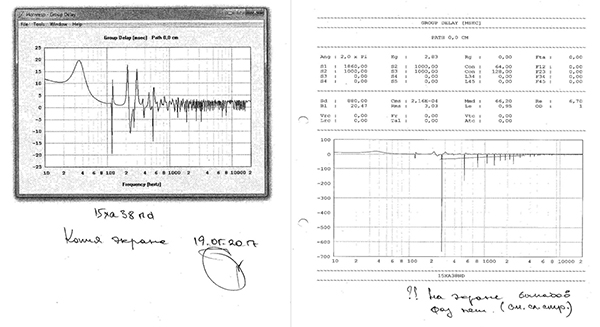 Hornresp - Group Delay
File Tools Window Help
Group Delay [msec] Path 0,0 cm
25
20
15
10
5
0
-5
-10
-15
-20
-25
10 2 4 6 8 100 2 4 6 8 1000 2 4 6 8 10000 2
Frequency [hertz]
15xa38nd
Копия экрана 19.05.2017
GROUP DELAY [MSEC]
PATH 0,0 CM
Ang : 2,0 x Pi Eg : 2,83 Rg : 0,00 Fta : 0,00
S1 : 1860,00 S2 : 1000,00 Con : 64,00 F12 : 0,00
S2 : 1000,00 S3 : 1000,00 Con : 128,00 F23 : 0,00
S3 : 0,00 S4 : 0,00 L34 : 0,00 F34 : 0,00
S4 : 0,00 S5 : 0,00 L45 : 0,00 F45 : 0,00
Sd : 880,00 Cms : 2,16E-04 Mmd : 66,20 Re : 6,70
Bl : 20,47 Rms : 3,03 Le : 0,95 OD : 1
Vrc : 0,00 Fr : 0,00 Vtc : 0,00
Lrc : 0,00 Tal : 0,00 Atc : 0,00
100
0
-100
-200
-300
-400
-500
-600
-700
10 2 4 6 8 100 2 4 6 8 1000 2 4 6 8 10000 2
15XA38ND
?! На экране
фаз нет. (см. сл. стр.)